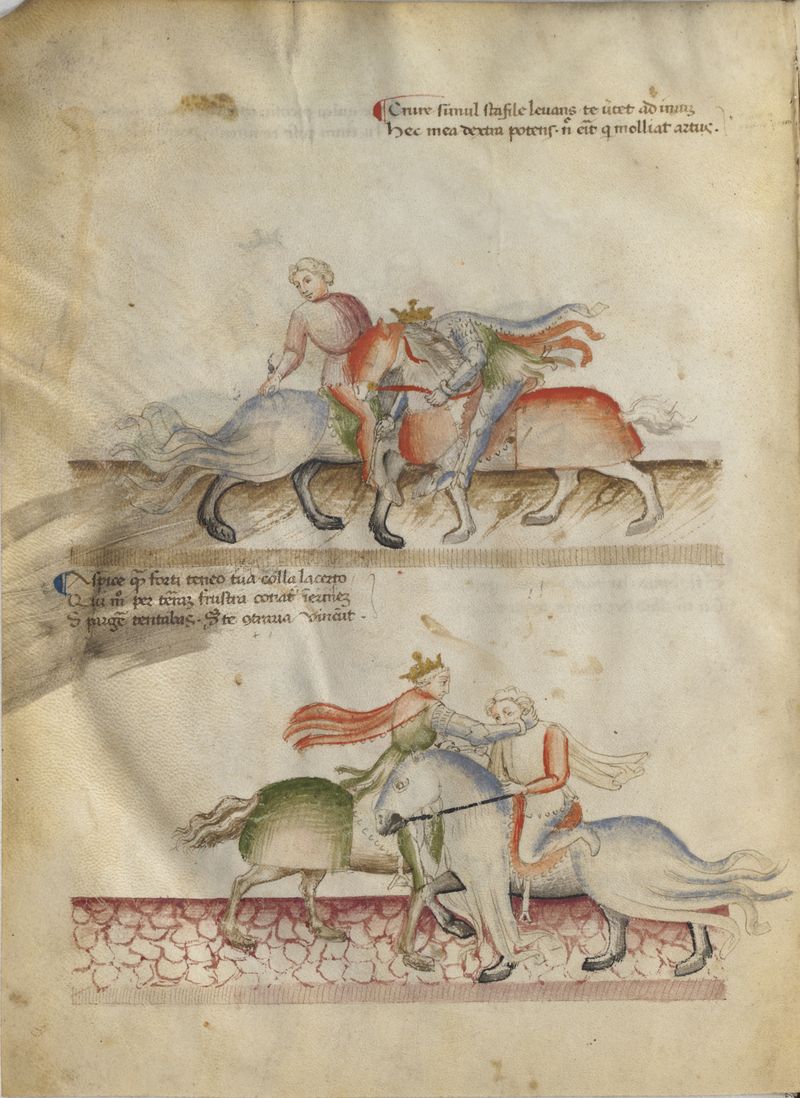 Crure simul stafile levans · te v̄tet ad imuꝫ
Hec mea dextra potens · nͦ eīt q molliat artus ·
Aspice qͣꝫ forti teneo tua colla lacerto
Qui mͦ per teŕaꝫ frustra conatꝰ īermeꝫ
Spargē tentabas · Sꝫ te ꝯtraria vincūt ·